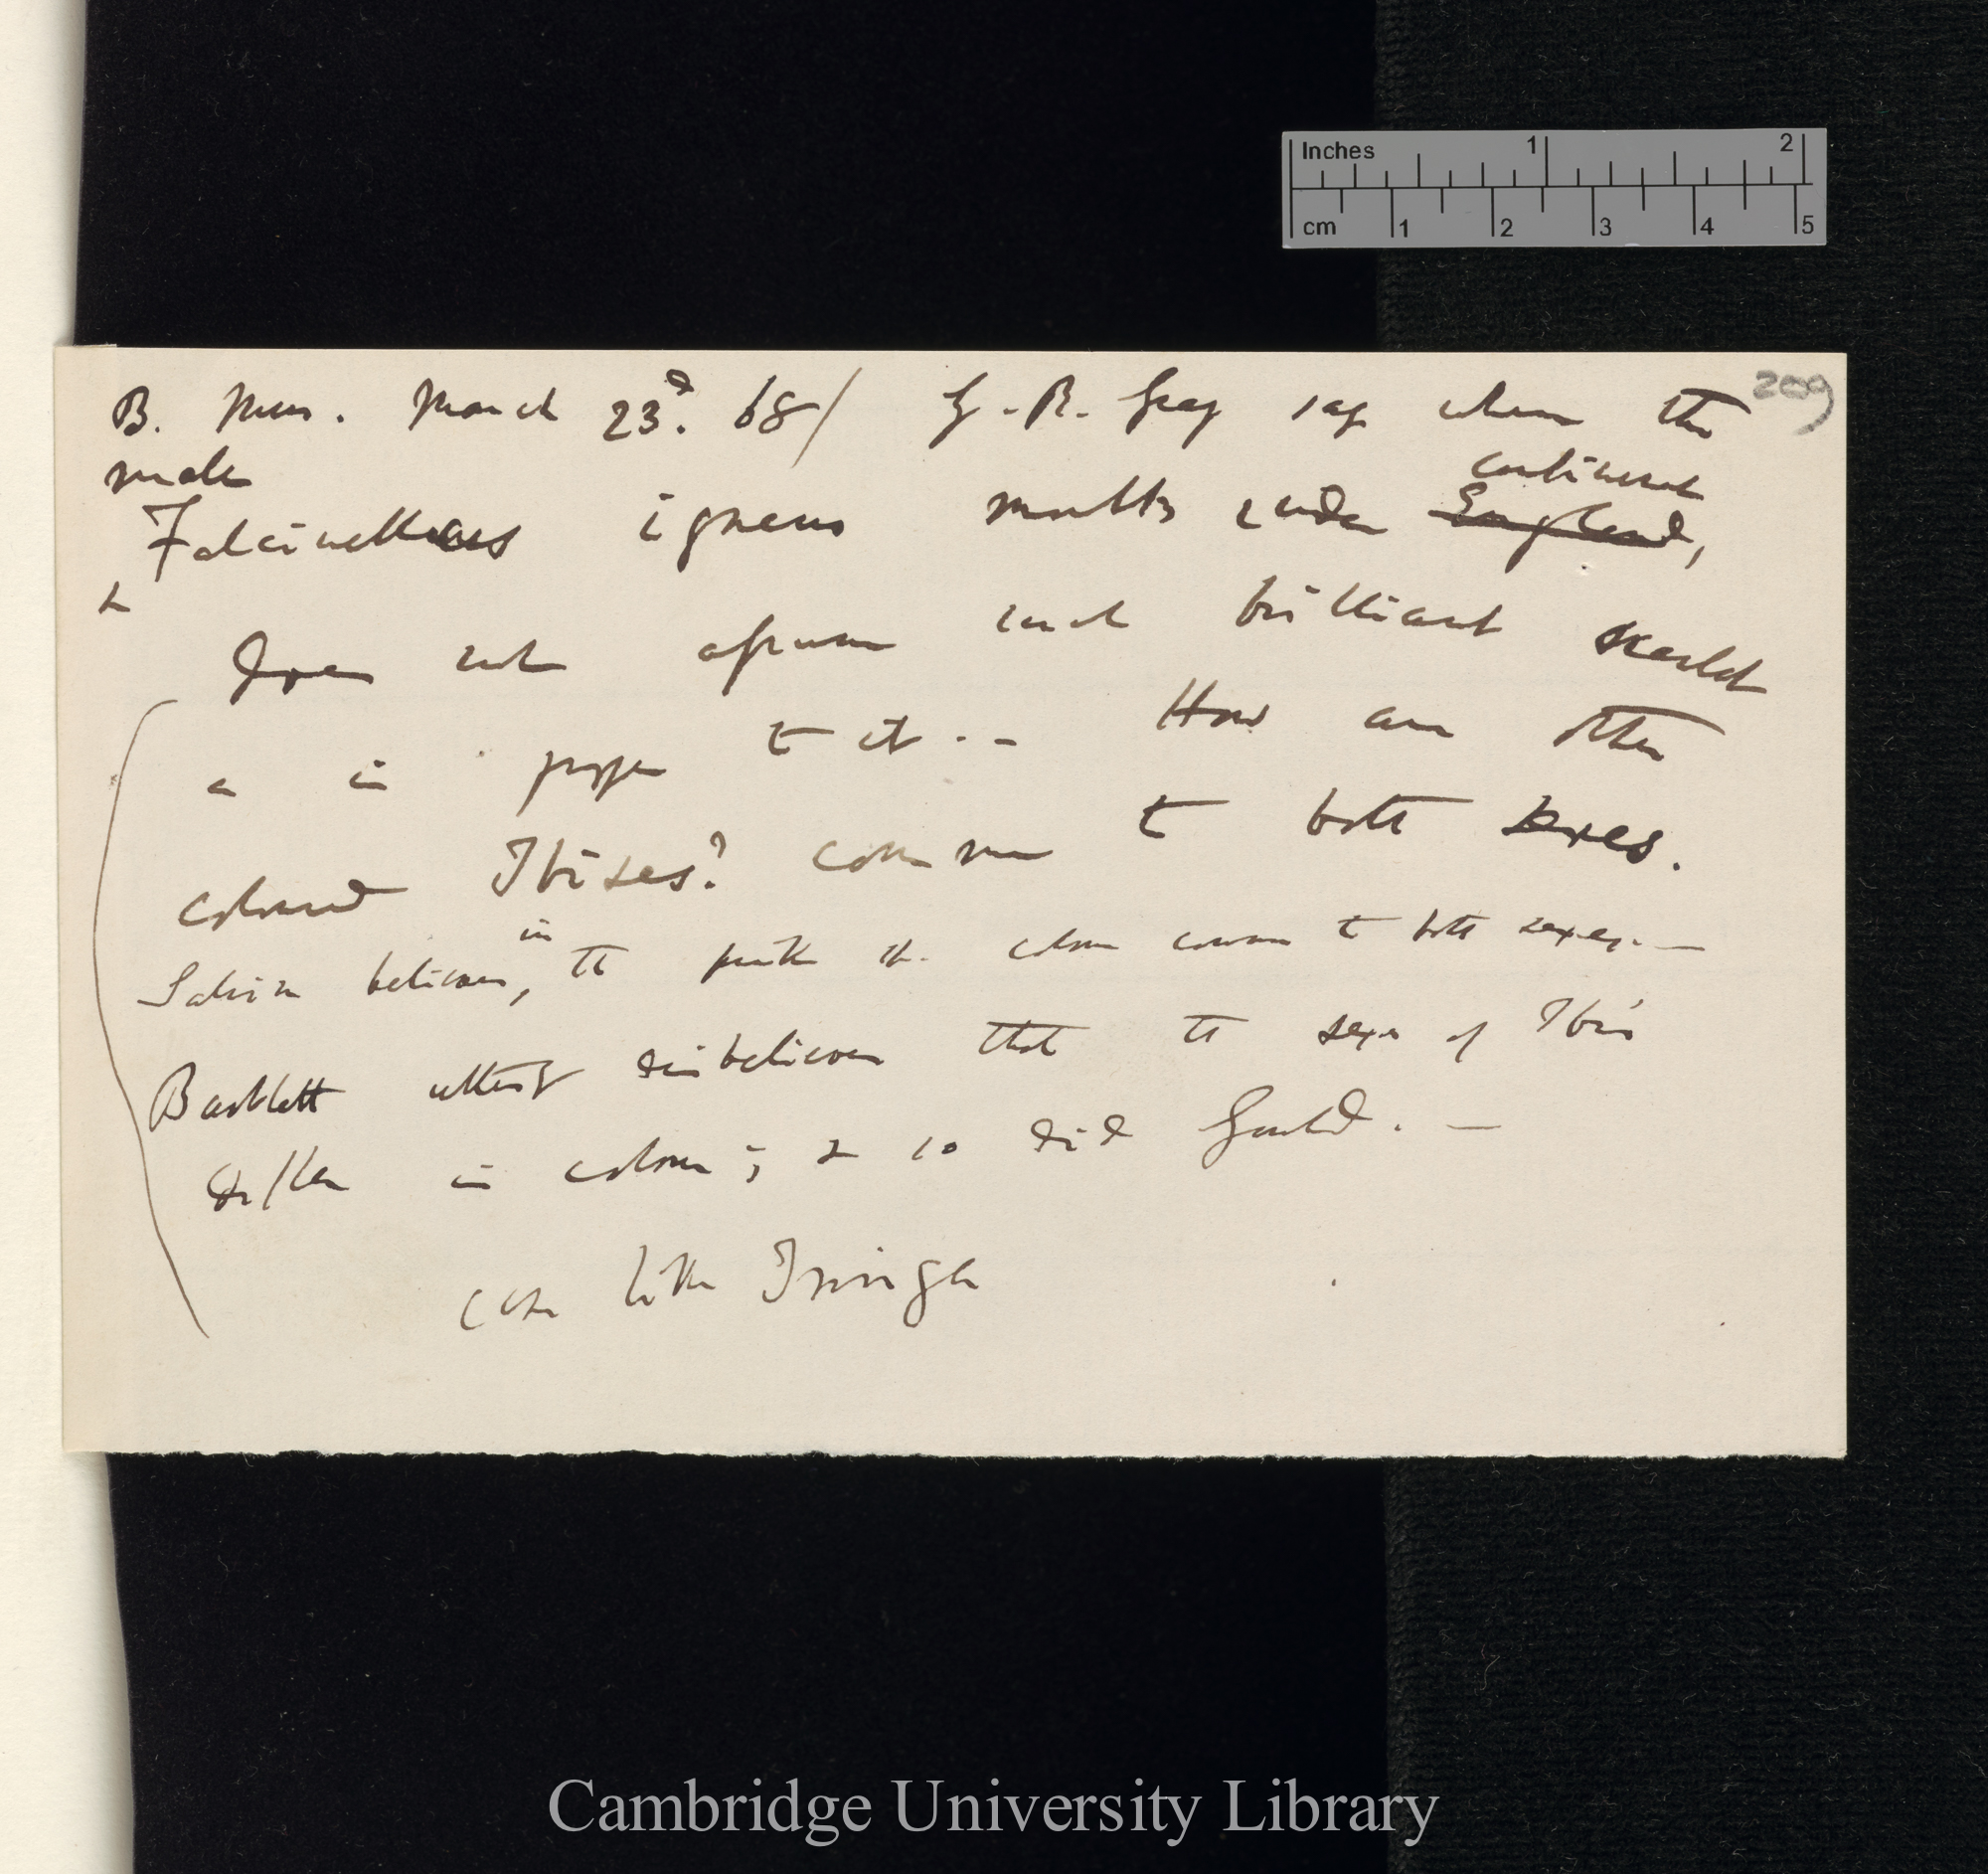 Inches 1 2
cm 1 2 3 4 5
209
B. Mus. March 23d. 68/ G. R. Gray says when the
male
continent
Falcinellus igneus moults under England,
it
does not assume such brilliant scarlet
as is proper to it. — How are other
coloured Ibises? common to both sexes.
Salvin believes, in the the colour common to both sexes. —
Bartlett utterly disbelieves that the sexes of Ibis
differ in colour; & so did Gould. —
case like Tringa
Cambridge University Library